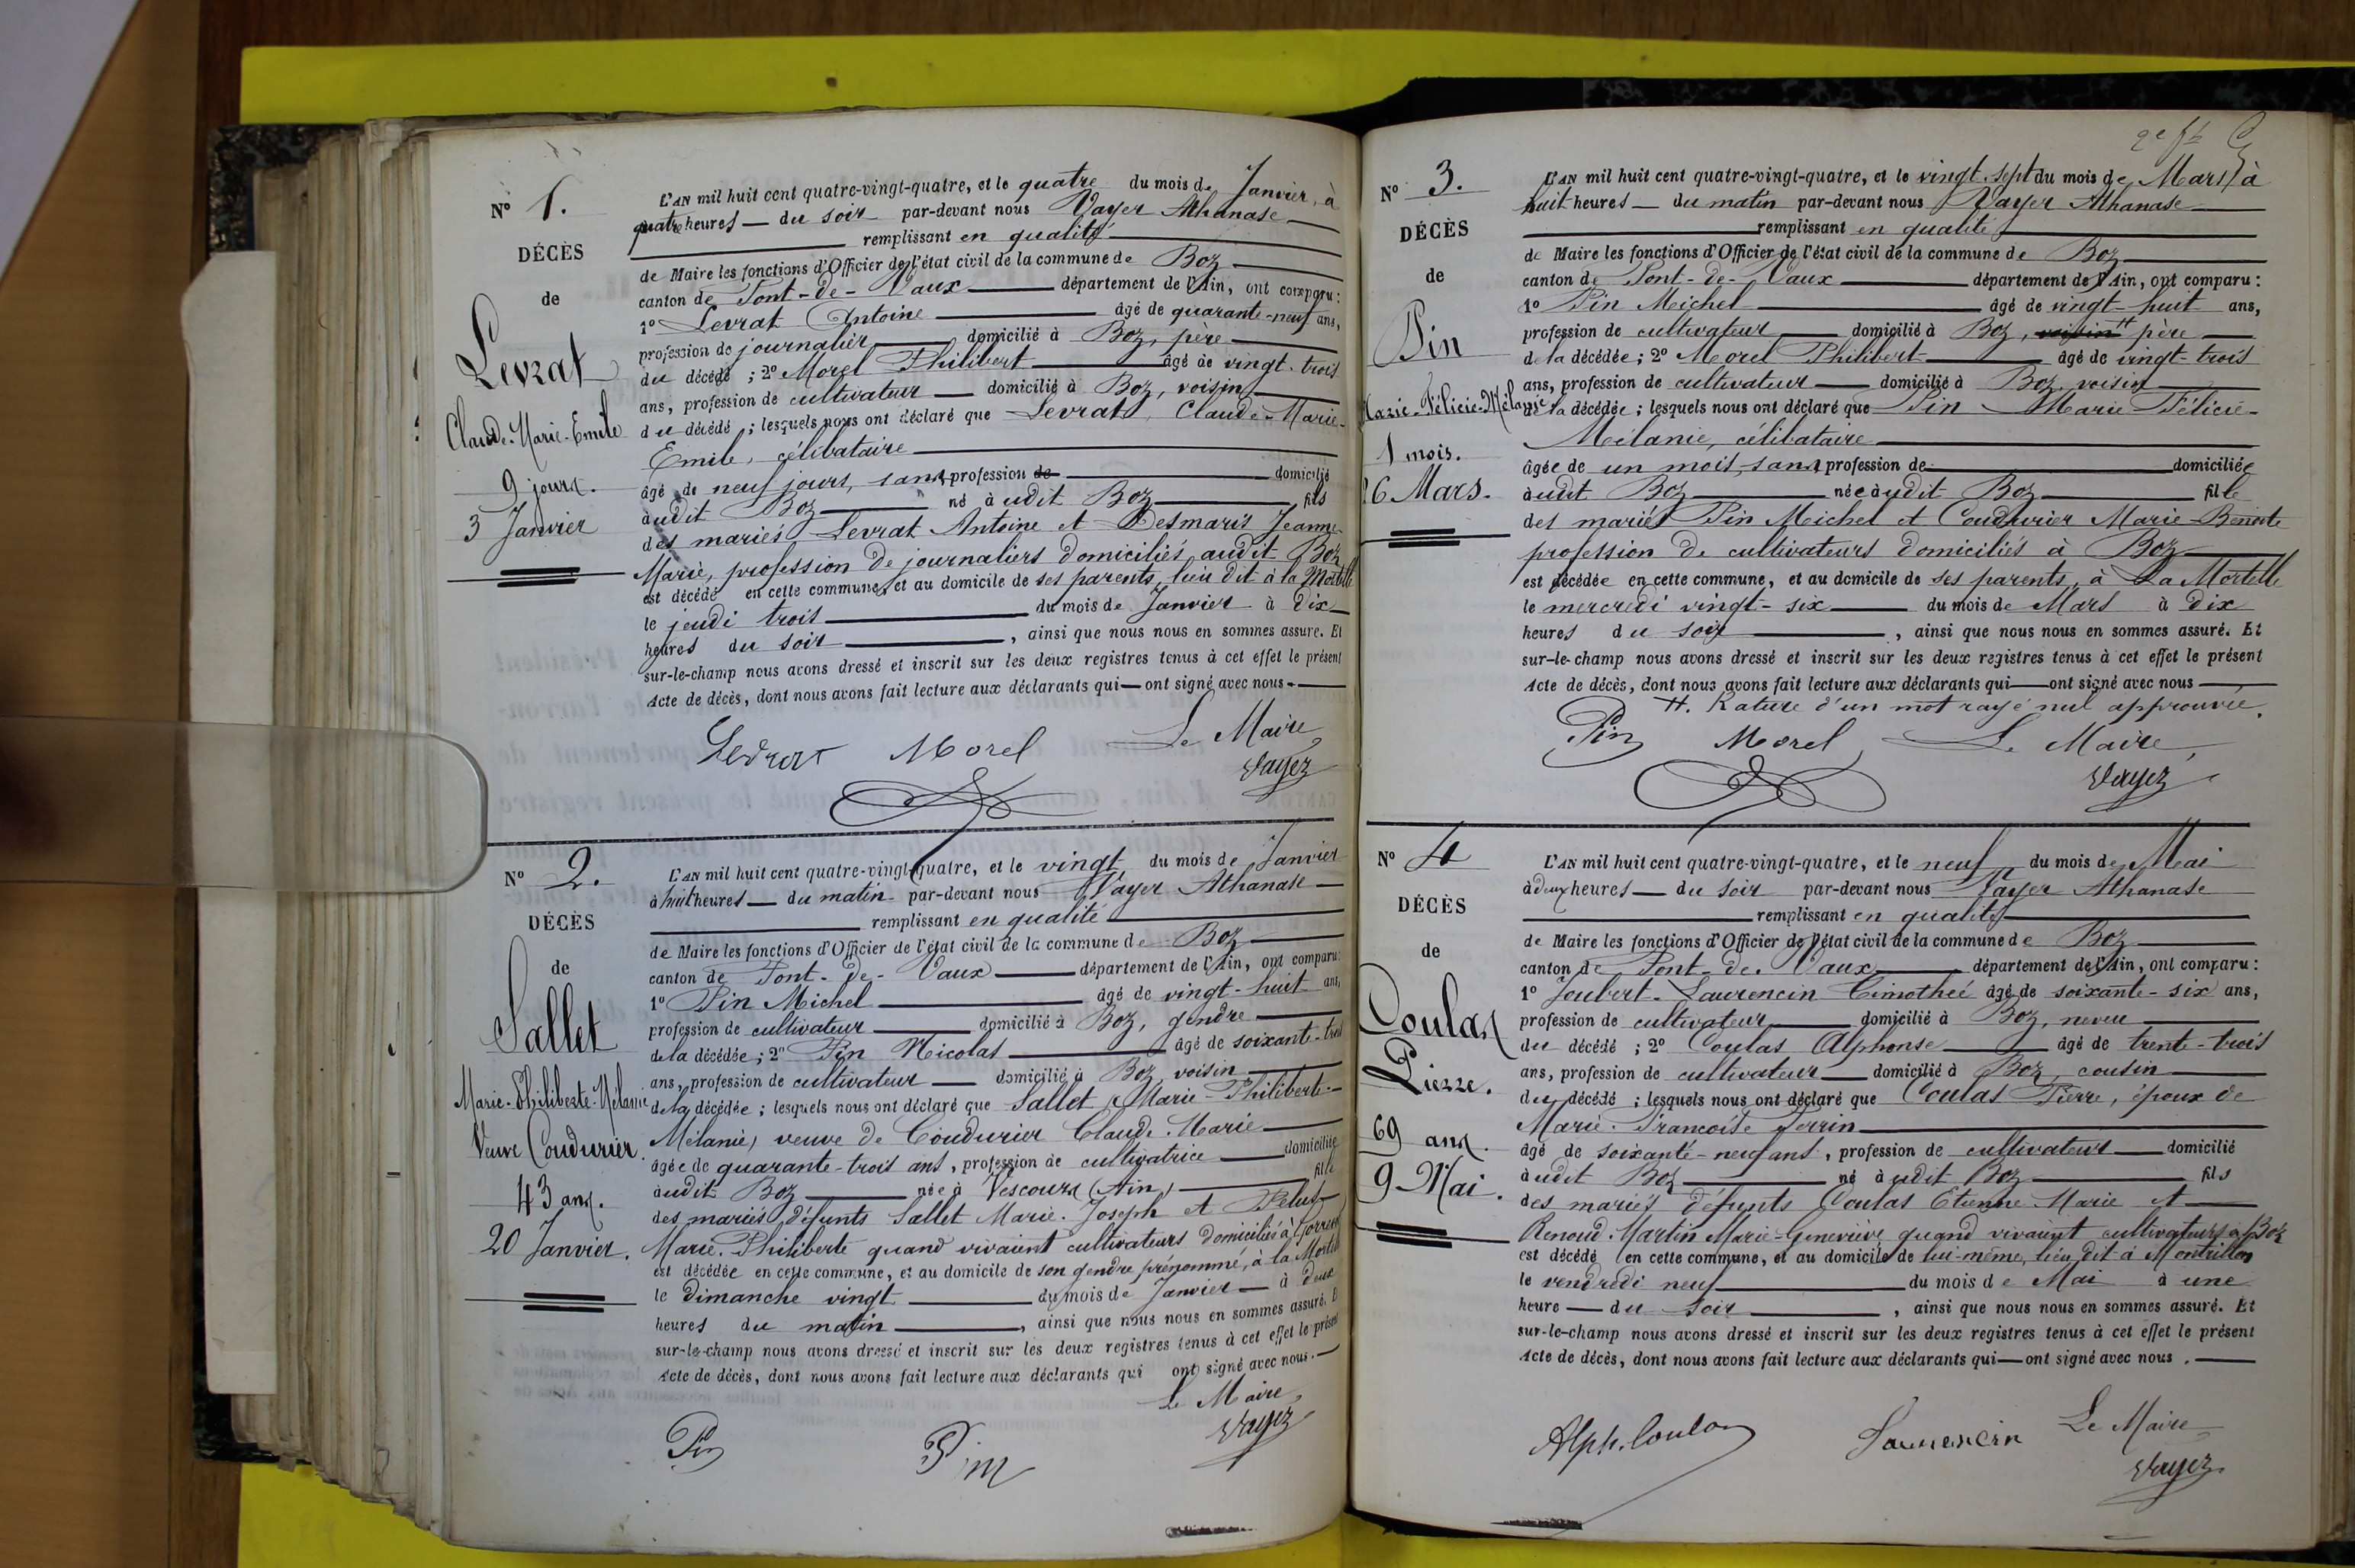 Nº 1.
DÉCÈS
de
Levrat
Claude-Marie-Emile
9 jours.
3 Janvier
L'AN mil huit cent quatre-vingt-quatre, et le quatre du mois de Janvier, à
quatre heures — du soir par-devant nous Vayer Athanase
remplissant en qualité
de Maire les fonctions d'Officier de l'état civil de la commune de Boz
canton de Pont-de-Vaux département de l'Ain, ont comparu :
1º Levrat Antoine âgé de quarante-neuf ans,
profession de journalier domicilié à Boz, père
du décédé ; 2º Morel Philibert âgé de vingt-trois
ans, profession de cultivateur domicilié à Boz, voisin
du décédé ; lesquels nous ont déclaré que Levrat, Claude-Marie-
Emile, célibataire
âgé de neuf jours, sans profession de domicilié
audit Boz né audit Boz fils
des mariés Levrat Antoine et Desmaris Jeanne
Marie, profession de journaliers domiciliés audit Boz
est décédé en cette commune, et au domicile de ses parents, lieu dit à la Mortelle
le jeudi trois du mois de Janvier à dix
heures du soir, ainsi que nous nous en sommes assuré. Et
sur-le-champ nous avons dressé et inscrit sur les deux registres tenus à cet effet le présent
Acte de décès, dont nous avons fait lecture aux déclarants qui — ont signé avec nous
Levrat Morel Le Maire
Vayer
Nº 2.
DÉCÈS
de
Sallet
Marie-Philiberte-Mélanie
Veuve Coudurier
43 ans.
20 Janvier.
L'AN mil huit cent quatre-vingt-quatre, et le vingt du mois de Janvier
à huit heures — du matin par-devant nous Vayer Athanase
remplissant en qualité
de Maire les fonctions d'Officier de l'état civil de la commune de Boz
canton de Pont-de-Vaux département de l'Ain, ont comparu :
1º Pin Michel âgé de vingt-huit ans,
profession de cultivateur domicilié à Boz, gendre
de la décédée ; 2º Pin Nicolas âgé de soixante-trois
ans, profession de cultivateur domicilié à Boz, voisin
de la décédée ; lesquels nous ont déclaré que Sallet Marie-Philiberte-
Mélanie, veuve de Coudurier Claude-Marie
âgée de quarante-trois ans, profession de cultivatrice domiciliée
audit Boz née à Vescours (Ain) fille
des mariés défunts Sallet Marie-Joseph et Pelus
Marie-Philiberte quand vivaient cultivateurs domiciliés à
est décédée en cette commune, et au domicile de son gendre prénommé, à la Mortelle
le Dimanche vingt du mois de Janvier — à deux
heures du matin, ainsi que nous nous en sommes assuré. Et
sur-le-champ nous avons dressé et inscrit sur les deux registres tenus à cet effet le présent
Acte de décès, dont nous avons fait lecture aux déclarants qui ont signé avec nous.
Le Maire
Pin Pin Vayer
Nº 3.
DÉCÈS
de
Pin
Marie-Félicie-Mélanie
1 mois.
26 Mars.
L'AN mil huit cent quatre-vingt-quatre, et le vingt-sept du mois de Mars, à
huit heures — du matin par-devant nous Vayer Athanase
remplissant en qualité
de Maire les fonctions d'Officier de l'état civil de la commune de Boz
canton de Pont-de-Vaux département de l'Ain, ont comparu :
1º Pin Michel âgé de vingt-huit ans,
profession de cultivateur domicilié à Boz, voisin # père
de la décédée ; 2º Morel Philibert âgé de vingt-trois
ans, profession de cultivateur domicilié à Boz, voisin
de la décédée ; lesquels nous ont déclaré que Pin Marie Félicie-
Mélanie, célibataire
âgée de un mois, sans profession de domiciliée
audit Boz née audit Boz fille
des mariés Pin Michel et Coudurier Marie-Benoite
profession de cultivateurs domiciliés à Boz
est décédée en cette commune, et au domicile de ses parents, à La Mortelle
le mercredi vingt-six du mois de Mars à dix
heures du soir, ainsi que nous nous en sommes assuré. Et
sur-le-champ nous avons dressé et inscrit sur les deux registres tenus à cet effet le présent
Acte de décès, dont nous avons fait lecture aux déclarants qui — ont signé avec nous
#. Rature d'un mot rayé nul approuvée.
Pin Morel Le Maire,
Vayer
Nº 4
DÉCÈS
de
Coulas
Pierre.
69 ans.
9 Mai.
L'AN mil huit cent quatre-vingt-quatre, et le neuf du mois de Mai
à deux heures — du soir par-devant nous Vayer Athanase
remplissant en qualité
de Maire les fonctions d'Officier de l'état civil de la commune de Boz
canton de Pont-de-Vaux département de l'Ain, ont comparu :
1º Joubert-Laurencin Timothée âgé de soixante-six ans,
profession de cultivateur domicilié à Boz, neveu
du décédé ; 2º Coulas Alphonse âgé de trente-trois
ans, profession de cultivateur domicilié à Boz, cousin
du décédé ; lesquels nous ont déclaré que Coulas Pierre, époux de
Marie-Françoise Perrin
âgé de soixante-neuf ans, profession de cultivateur domicilié
audit Boz né audit Boz fils
des mariés défunts Coulas Etienne Marie et
Renoud-Martin Marie-Geneviève quand vivaient cultivateurs à Boz
est décédé en cette commune, et au domicile de lui-même, lieu dit à Montrillon
le vendredi neuf du mois de Mai à une
heure — du soir, ainsi que nous nous en sommes assuré. Et
sur-le-champ nous avons dressé et inscrit sur les deux registres tenus à cet effet le présent
Acte de décès, dont nous avons fait lecture aux déclarants qui — ont signé avec nous.
Alph. Coulas Laurencin Le Maire
Vayer